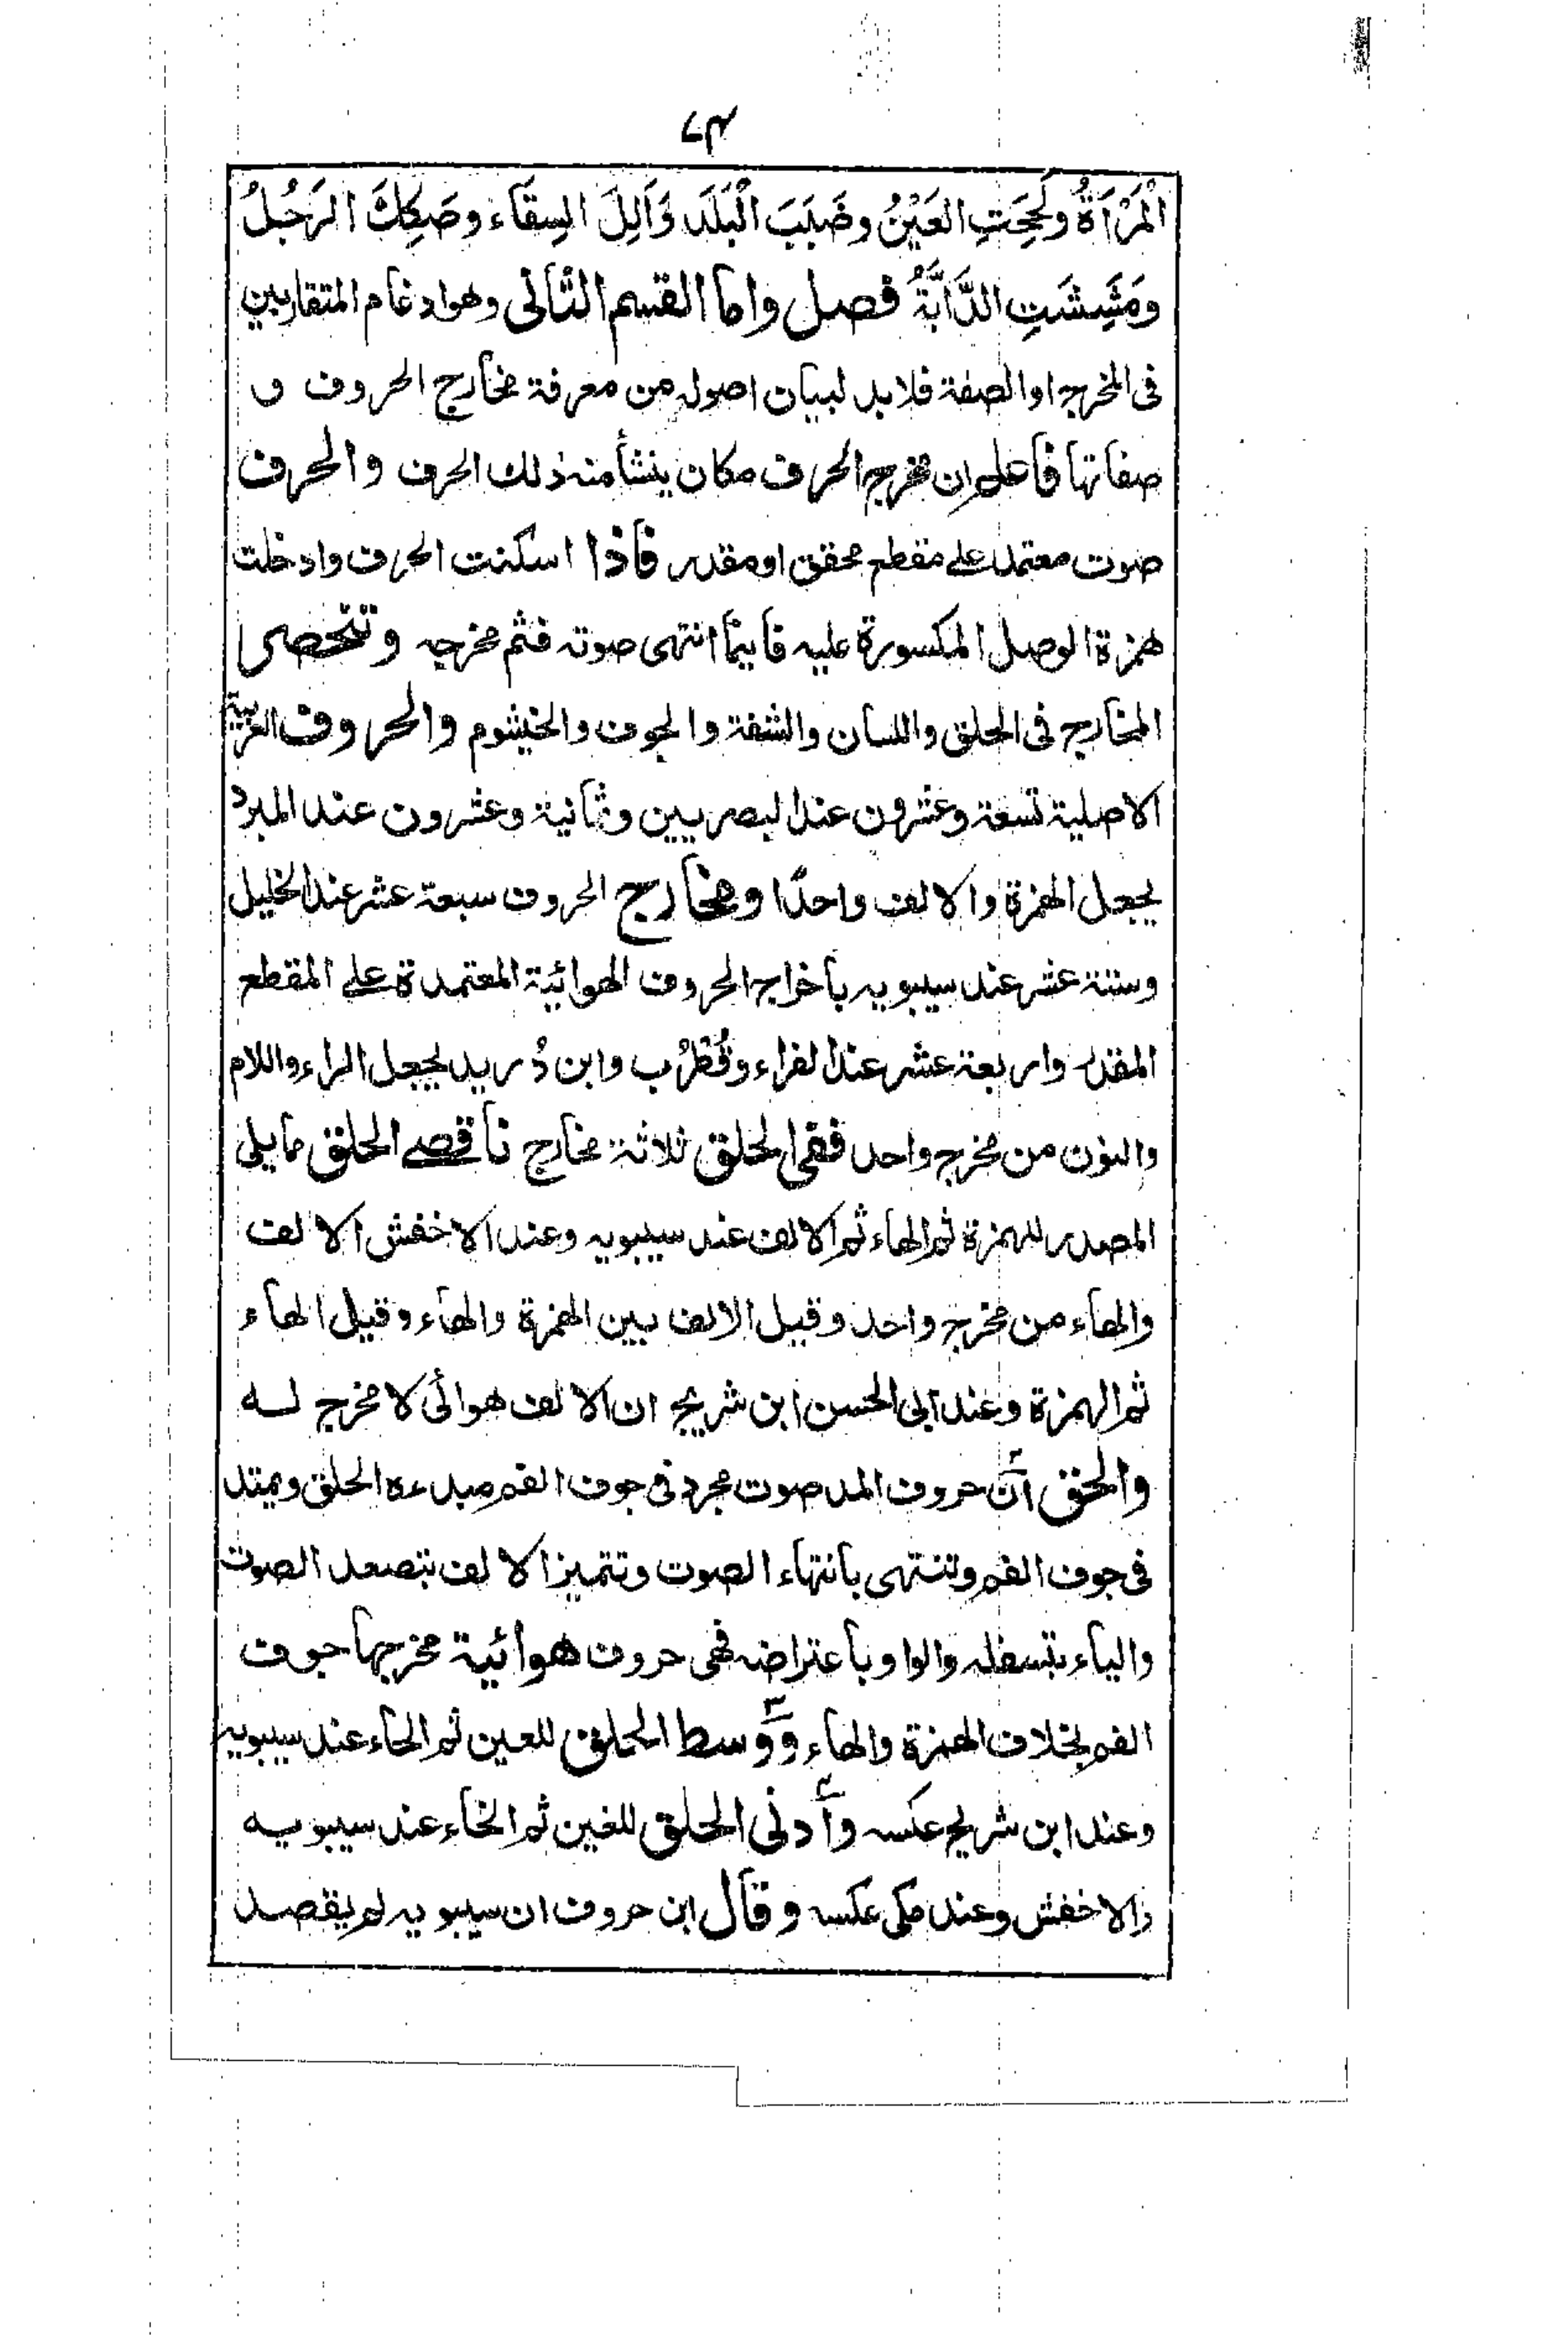 ٧٣
الْمَرْاَةُ ولَحِحَتِ العَيْنُ وضَبَبَ الْبَلَدَ وَاَلِلَ السِقَاء وصَكِكَ الرَجُلُ
ومَشِشَتِ الدَّابَّةُ فصل واما القسم الثانى وهو ادغام المتقاربين
فى المخرج او الصفة فلا بد لبيان اصوله من معرفة مخارج الحروف و
صفاتها فاعلم ان مخرج الحرف مكان ينشأ منه ذلك الحرف والحرف
صوت معتمد على مقطع محقق او مقدر فاذا اسكنت الحرف وادخلت
همزة الوصل المكسورة عليه فاينما انتهى صوته فثم مخرجه وتنحصر
المخارج فى الحلق واللسان والشفة والجوف والخيشوم والحروف العربية
الاصلية تسعة وعشرون عند البصريين وثمانية وعشرون عند المبرد
يجعل الهمزة والالف واحدًا ومخارج الحروف سبعة عشر عند الخليل
وستة عشر عند سيبويه باخراج الحروف الهوائية المعتمدة على المقطع
المقدر واربعة عشر عند الفراء وقُطْرُب وابن دُريد بجعل الراء واللام
والنون من مخرج واحد ففى الحلق ثلاثة مخارج فاقصے الحلق مما يلى
المصدر للهمزة ثم الهاء ثم الالف عند سيبويه وعند الاخفش الالف
والهاء من مخرج واحد وقيل الالف بين الهمزة والهاء وقيل الهاء
ثم الهمزة وعند ابى الحسن ابن شريح ان الالف هوائى لا مخرج له
والحق اَنّ حروف المد صوت مجرد فى جوف الفم مبدءه الحلق ويمتد
فى جوف الفم وتنتهى بانتهاء الصوت وتتميز الالف بتصعد الصوت
والياء بتسفله والواو باعتراضه فهى حروف هوائية مخرجها جوف
الفم بخلاف الهمزة والهاء ووسط الحلق للعين ثم الحاء عند سيبويه
وعند ابن شريح عكسه وأدنى الحلق للغين ثم الخاء عند سيبويه
والاخفش وعند مكى عكسه وقال ابن حروف ان سيبويه لم يقصد